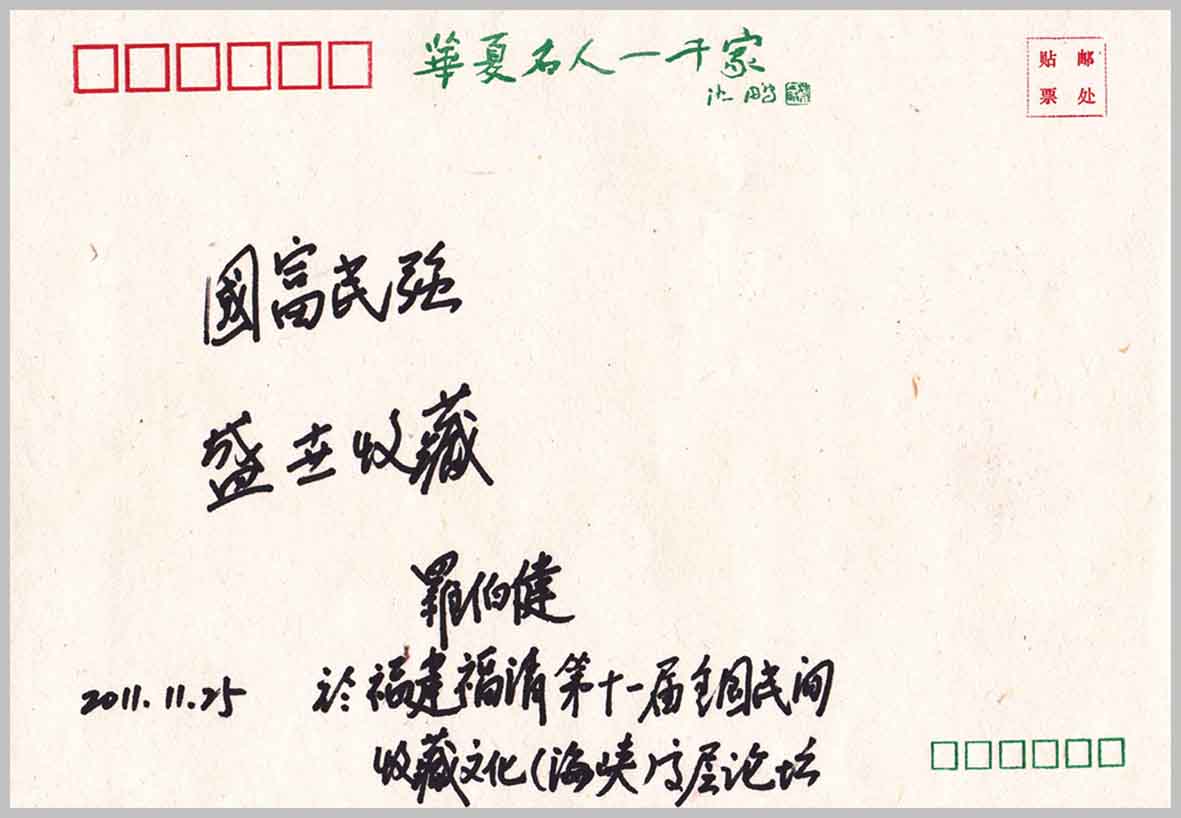 華夏名人一千家
沈鹏
贴 邮
票 处
國富民强
盛世收藏
羅伯健
2011.11.25 於福建福清第十一届全国民间
收藏文化(海峡)高层论坛